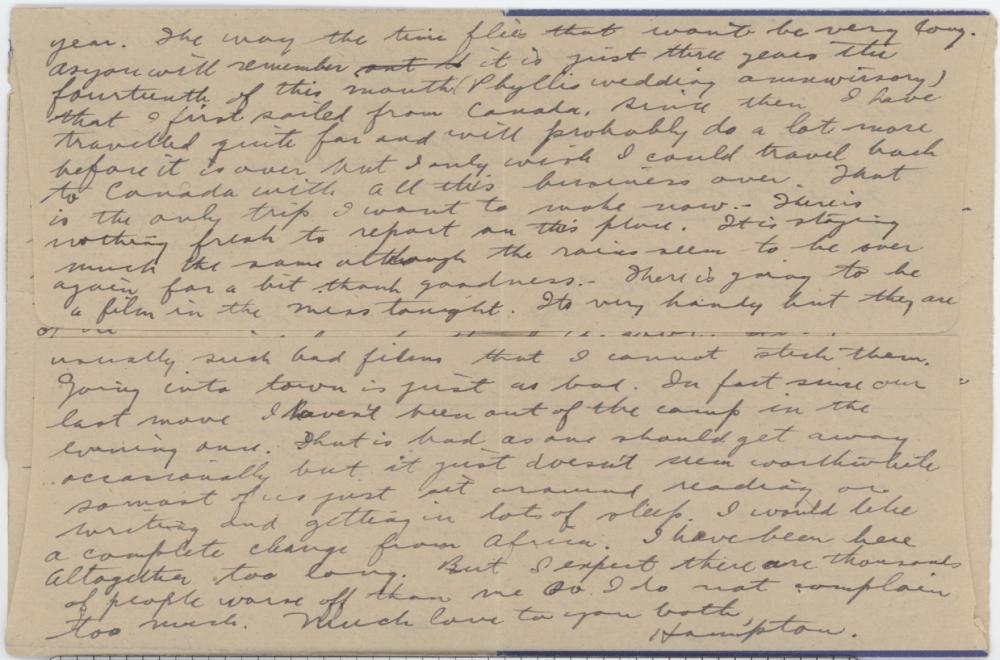 year. The way the time flies that wont be very long.
As you will remember it is just three years the
fourteenth of this month (Phyllis wedding anniversary)
that I first sailed from Canada. Since then I have
travelled quite far and will probably do a lot more
before it is over but I only wish I could travel back
to Canada with all this business over. That
is the only trip I want to make now. - There is
nothing fresh to report on this place. It is staying
much the same although the rains seem to be over
again for a bit thank goodness. - There is going to be
a film in the mess tonight. Its very handy but they are
usually such bad films that I cannot stick them.
Going into town is just as bad. In fact since our
last move I haven't been out of the camp in the
evening once. That is bad as one should get away
occasionally but it just doesn't seem worthwhile
so most of us just sit around reading or
writing and getting in lots of sleep. I would like
a complete change from Africa. I have been here
altogether too long. But I expect there are thousands
of people worse off than me so I do not complain
too much. Much love to you both,
Hampton.